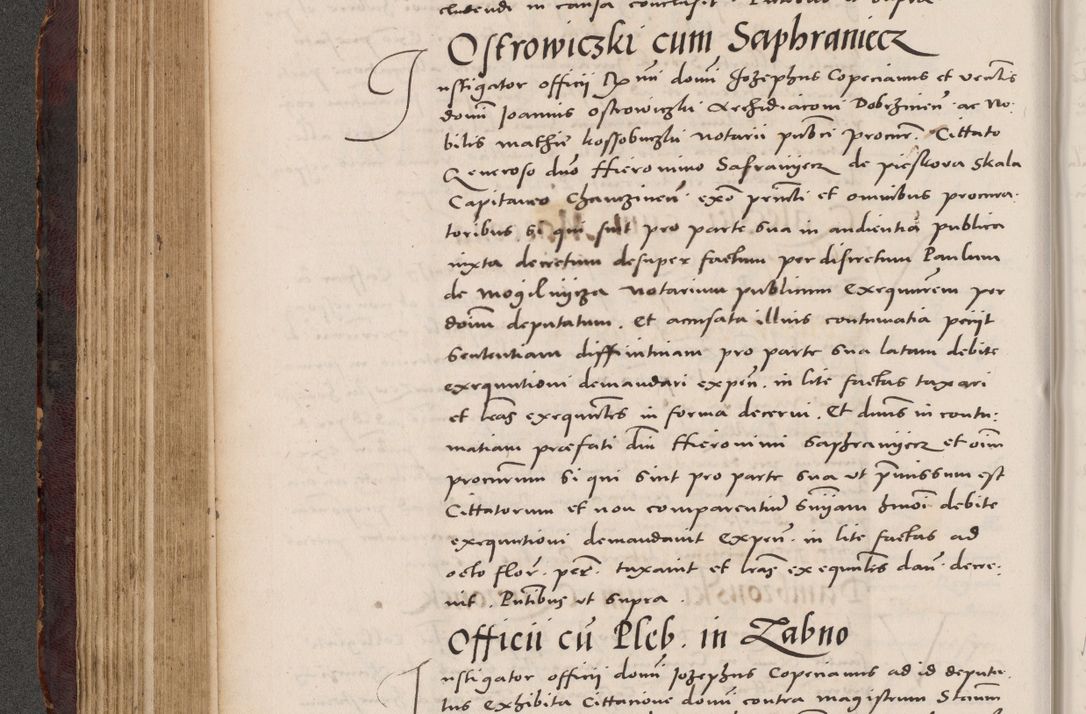 cludendi in causa conclusit. Putibus ut supra
Ostrowiczki cum Saphraniecz
Instigator officii domi Jozephus Copecianus et venlis
domi Joannis Ostrowiczki Archidiaconi Dobrzinen. ac No:
bilis mathie kossobuczki notarii publi procur. Cittato
Generoso dno Hieronimo Safranyecz de pieskova skala
Capitaneo Chanczinen. exo princli et omnibus procura:
toribus si qui sint pro parte sua in audientia publica
iuxta decretum desuper factum per discretum Paulum
de Mogilnycza notarium publicum Exequutem per
doim deputatum. Et accusata illius contumatia petiit
Sententiam diffinitiuam pro parte sua latam debite
exequutioni demandari expen. in lite factas taxari
et lras exequutles in forma decerni. Et duus in contu:
matiam præfati dni Hieronimi Saphranyecz et oim
procurum si qui sint pro parte sua ut pmissum est
Cittatorum et non comparentiu sniam hmoi debite
exequutioni demandauit Expen. in lite factas ad
octo flor. per. taxauit et lras exequutles dan. decre:
uit. Putibus ut supra.
Officii cu Pleb. in Zabno
Instigator officii domi Jozephus Copecianus ad id deputa:
tus Exhibita Cittatione domi contra magistrum Stanum